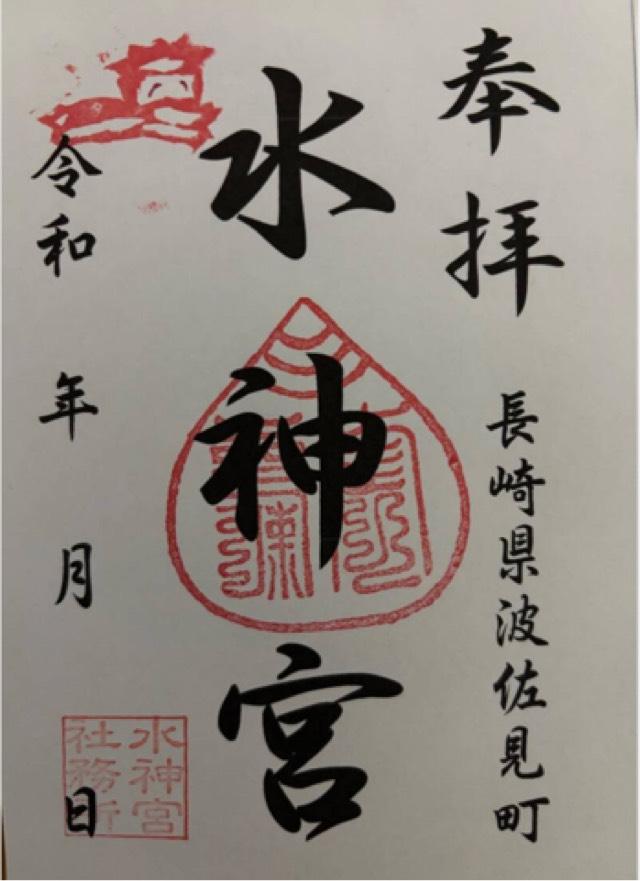 奉拝
長崎県波佐見町
水神宮
令和 年 月 日
水神宮
社務所